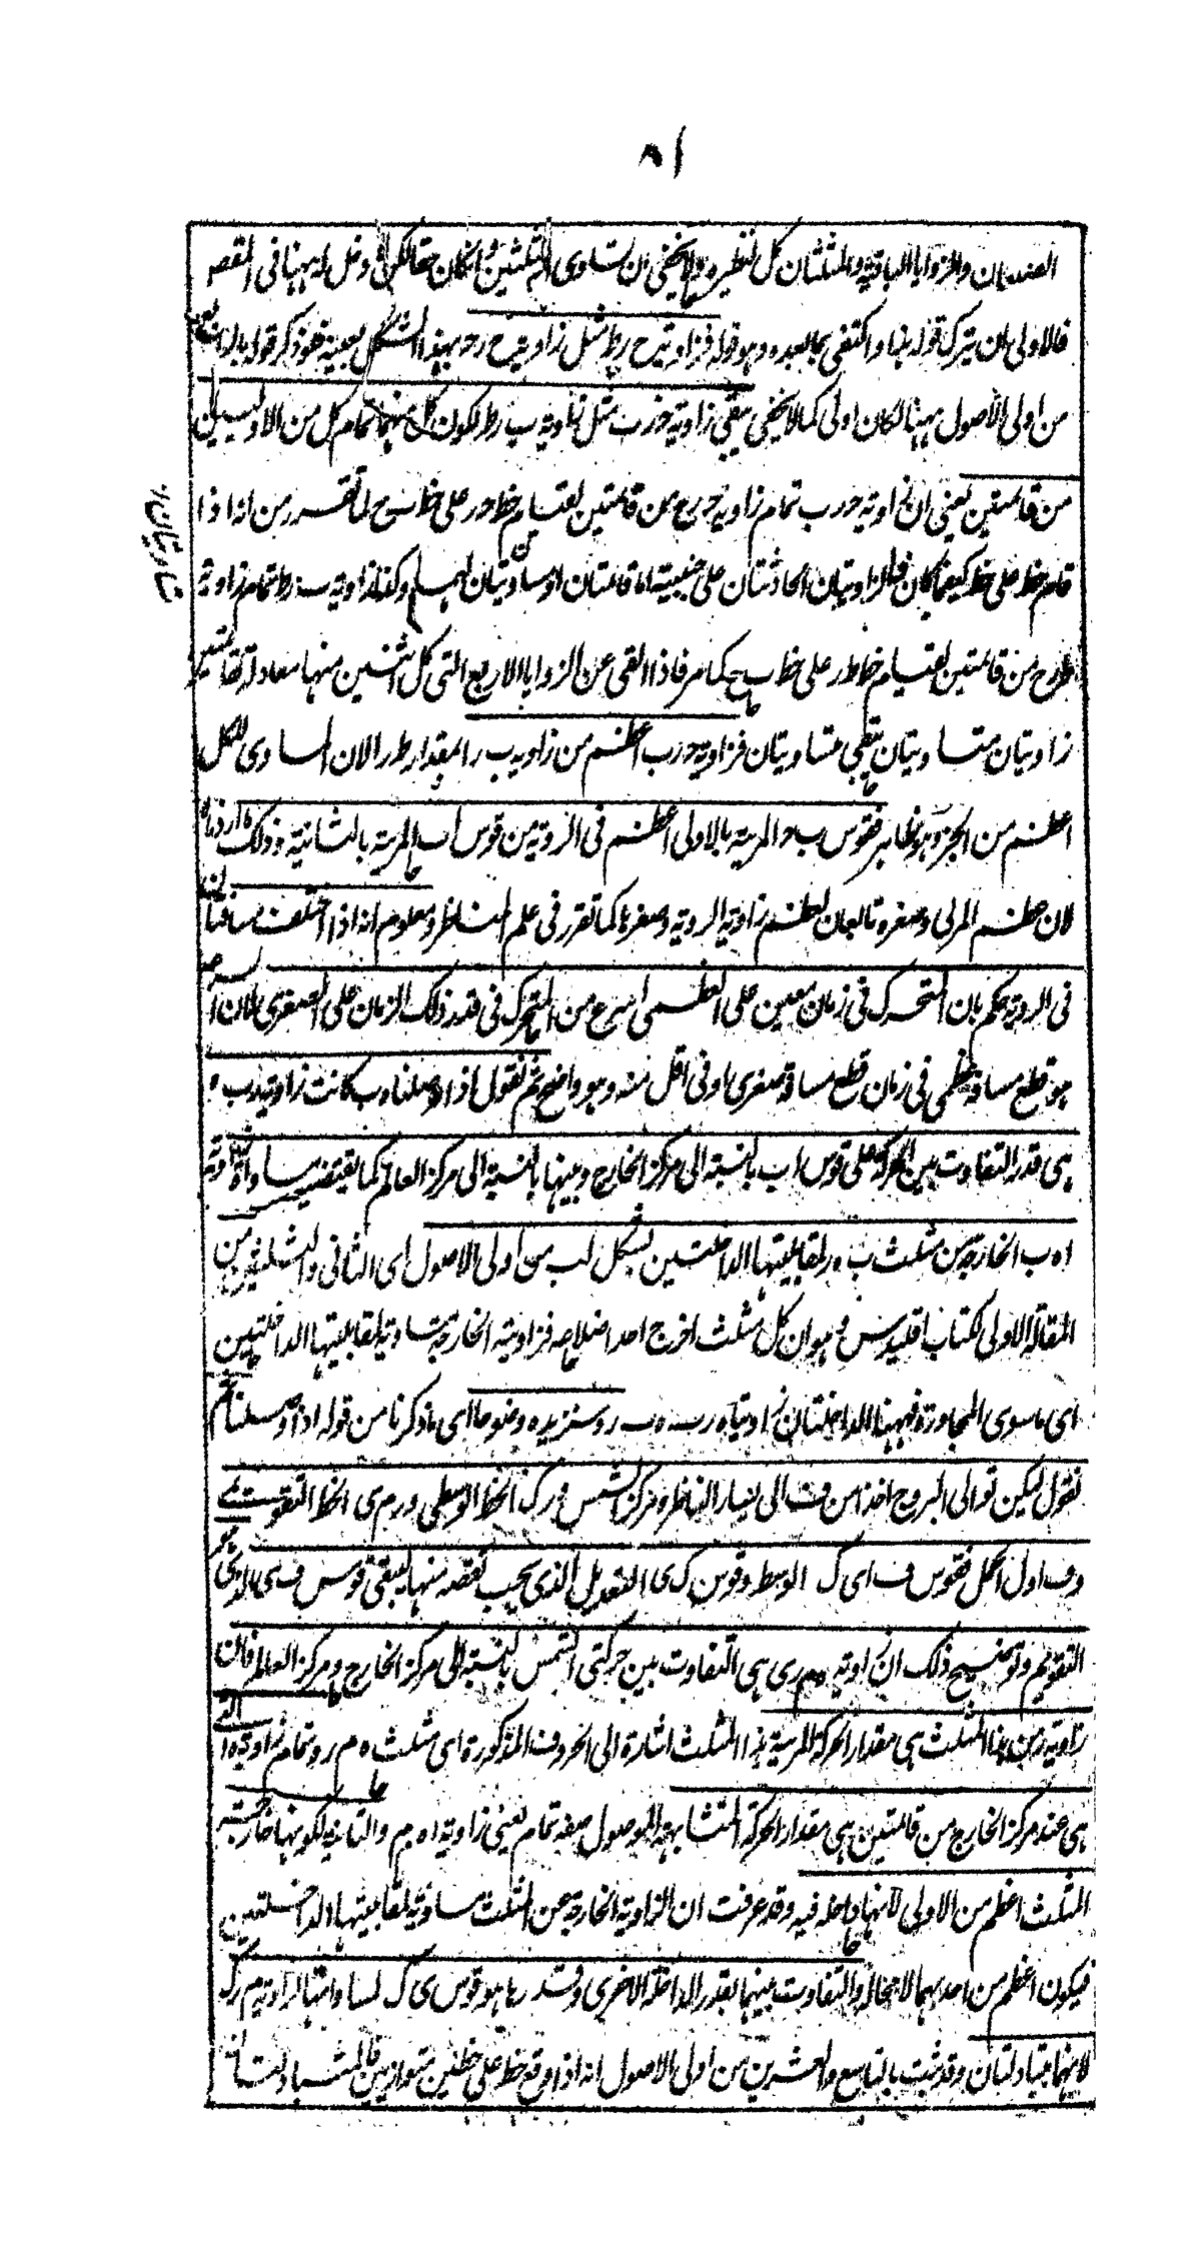 ٨١
الضلعان والزوايا الباقية والمثلثان كل لنظيره ولا يخفى ان تساوى المثلثين وانكان حقا لكن لا دخل له ههنا فى المقصود
فالاولى ان يترك قوله هنا واكتفى بما بعده وهو قوله فزاوية ح ر ط مثل زاوية ح ر د بهذا الشكل بعينه فلو ذكر قوله بالرابع
من اولى الاصول ههنا لكان اولى كما لا يخفى يبقى زاوية د ر ب مثل زاوية ب ر ط لكون كل منهما تمام كل من الاوليين
من قائمتين يعنى ان زاوية د ر ب تمام زاوية د ر ح من قائمتين لقيام خط د ر على خط ب ح لما تقرر من انه اذا
قام خط على خط كيفما كان فالزاويتان الحادثتان على جنبيه اما قائمتان او مساويتان لهما وكذا زاوية ب ر ط تمام زاوية
ط ر ح من قائمتين لقيام خط ط ر على خط ب ح كما مر فاذا القى عن الزوايا الاربع التى كل اثنين منها معادلة لقائمتين
زاويتان متساويتان يبقى متساويتان فزاوية د ر ب اعظم من زاوية ب ر ا بمقدار ط ر ا لان المساوى للكل
اعظم من الجزء وهو ظاهر فقوس ب د المرئية بالاولى اعظم فى الروية من قوس ا ب المرئية بالثانية وذلك ما اردناه
لان عظم المرئى وصغره تابعان لعظم زاوية الروية وصغرها كما تقرر فى علم المناظر ومعلوم انه اذا اختلفت مسافتان
فى الروية يحكم بان المتحرك فى زمان معين على العظمى اسرع من المتحرك فى قدر ذلك الزمان على الصغرى لان الاسرع
هو قطع مسافة عظمى فى زمان قطع مسافة صغرى او فى اقل منه وهو واضح ثم نقول اذا وصلنا ه ب كانت زاوية ر ب ه
هى قدر التفاوت بين الحركة على قوس ا ب بالنسبة الى مركز الخارج وبينها بالنسبة الى مركز العالم كما يقتضيه مساواة زاوية
ا ه ب الخارجة من مثلث ب ه ر لمقابلتيها الداخلتين بشكل لب من اولى الاصول اى الثانى والثلثين من
المقالة الاولى لكتاب اقليدس وهو ان كل مثلث اخرج احد اضلاعه فزاويته الخارجة مساوية لمقابلتيها الداخلتين
اى ما سوى المجاورة فههنا الداخلتان زاويتا ه ر ب ه ب ر وسنزيده وضوحا اى ما ذكرنا من قوله اذا وصلنا ثم
نقول ليكن توالى البروج اخذا من ف الى يسار الناظر ومركز الشمس م و ر ك الخط الوسطى و ر م ى الخط التقويمى
و ف اول الحمل فقوس ف ا ى ك الوسط وقوس ك ى التعديل الذى يجب نقصه منها ليبقى قوس ف ى الذى هو
التقويم ولتوضيح ذلك ان زاوية ه م ر هى التفاوت بين حركتى الشمس بالنسبة الى مركز الخارج ومركز العالم فان
زاوية ر من هذا المثلث هى مقدار الحركة المرئية هذا المثلث اشارة الى الحروف المذكورة اى مثلث ه م ر وتمام زاوية ه التى
هى عند مركز الخارج من قائمتين هى مقدار الحركة المتشابهة الموصول صفة تمام يعنى زاوية ا ه م والثانية لكونها خارجة
المثلث اعظم من الاولى لانها داخلة فيه وقد عرفت ان الزاوية الخارجة من المثلث مساوية لمقابلتيها الداخلتين
فيكون اعظم من احديهما لا محالة والتفاوت بينهما بقدر الداخلة الاخرى وقدرها هو قوس ى ك لمساواتها لزاوية م ر ك
لانهما متبادلتان وقد ثبت بالتاسع والعشرين من اولى الاصول انه اذا وقع خط على خطين متوازيين فالمتبادلتان